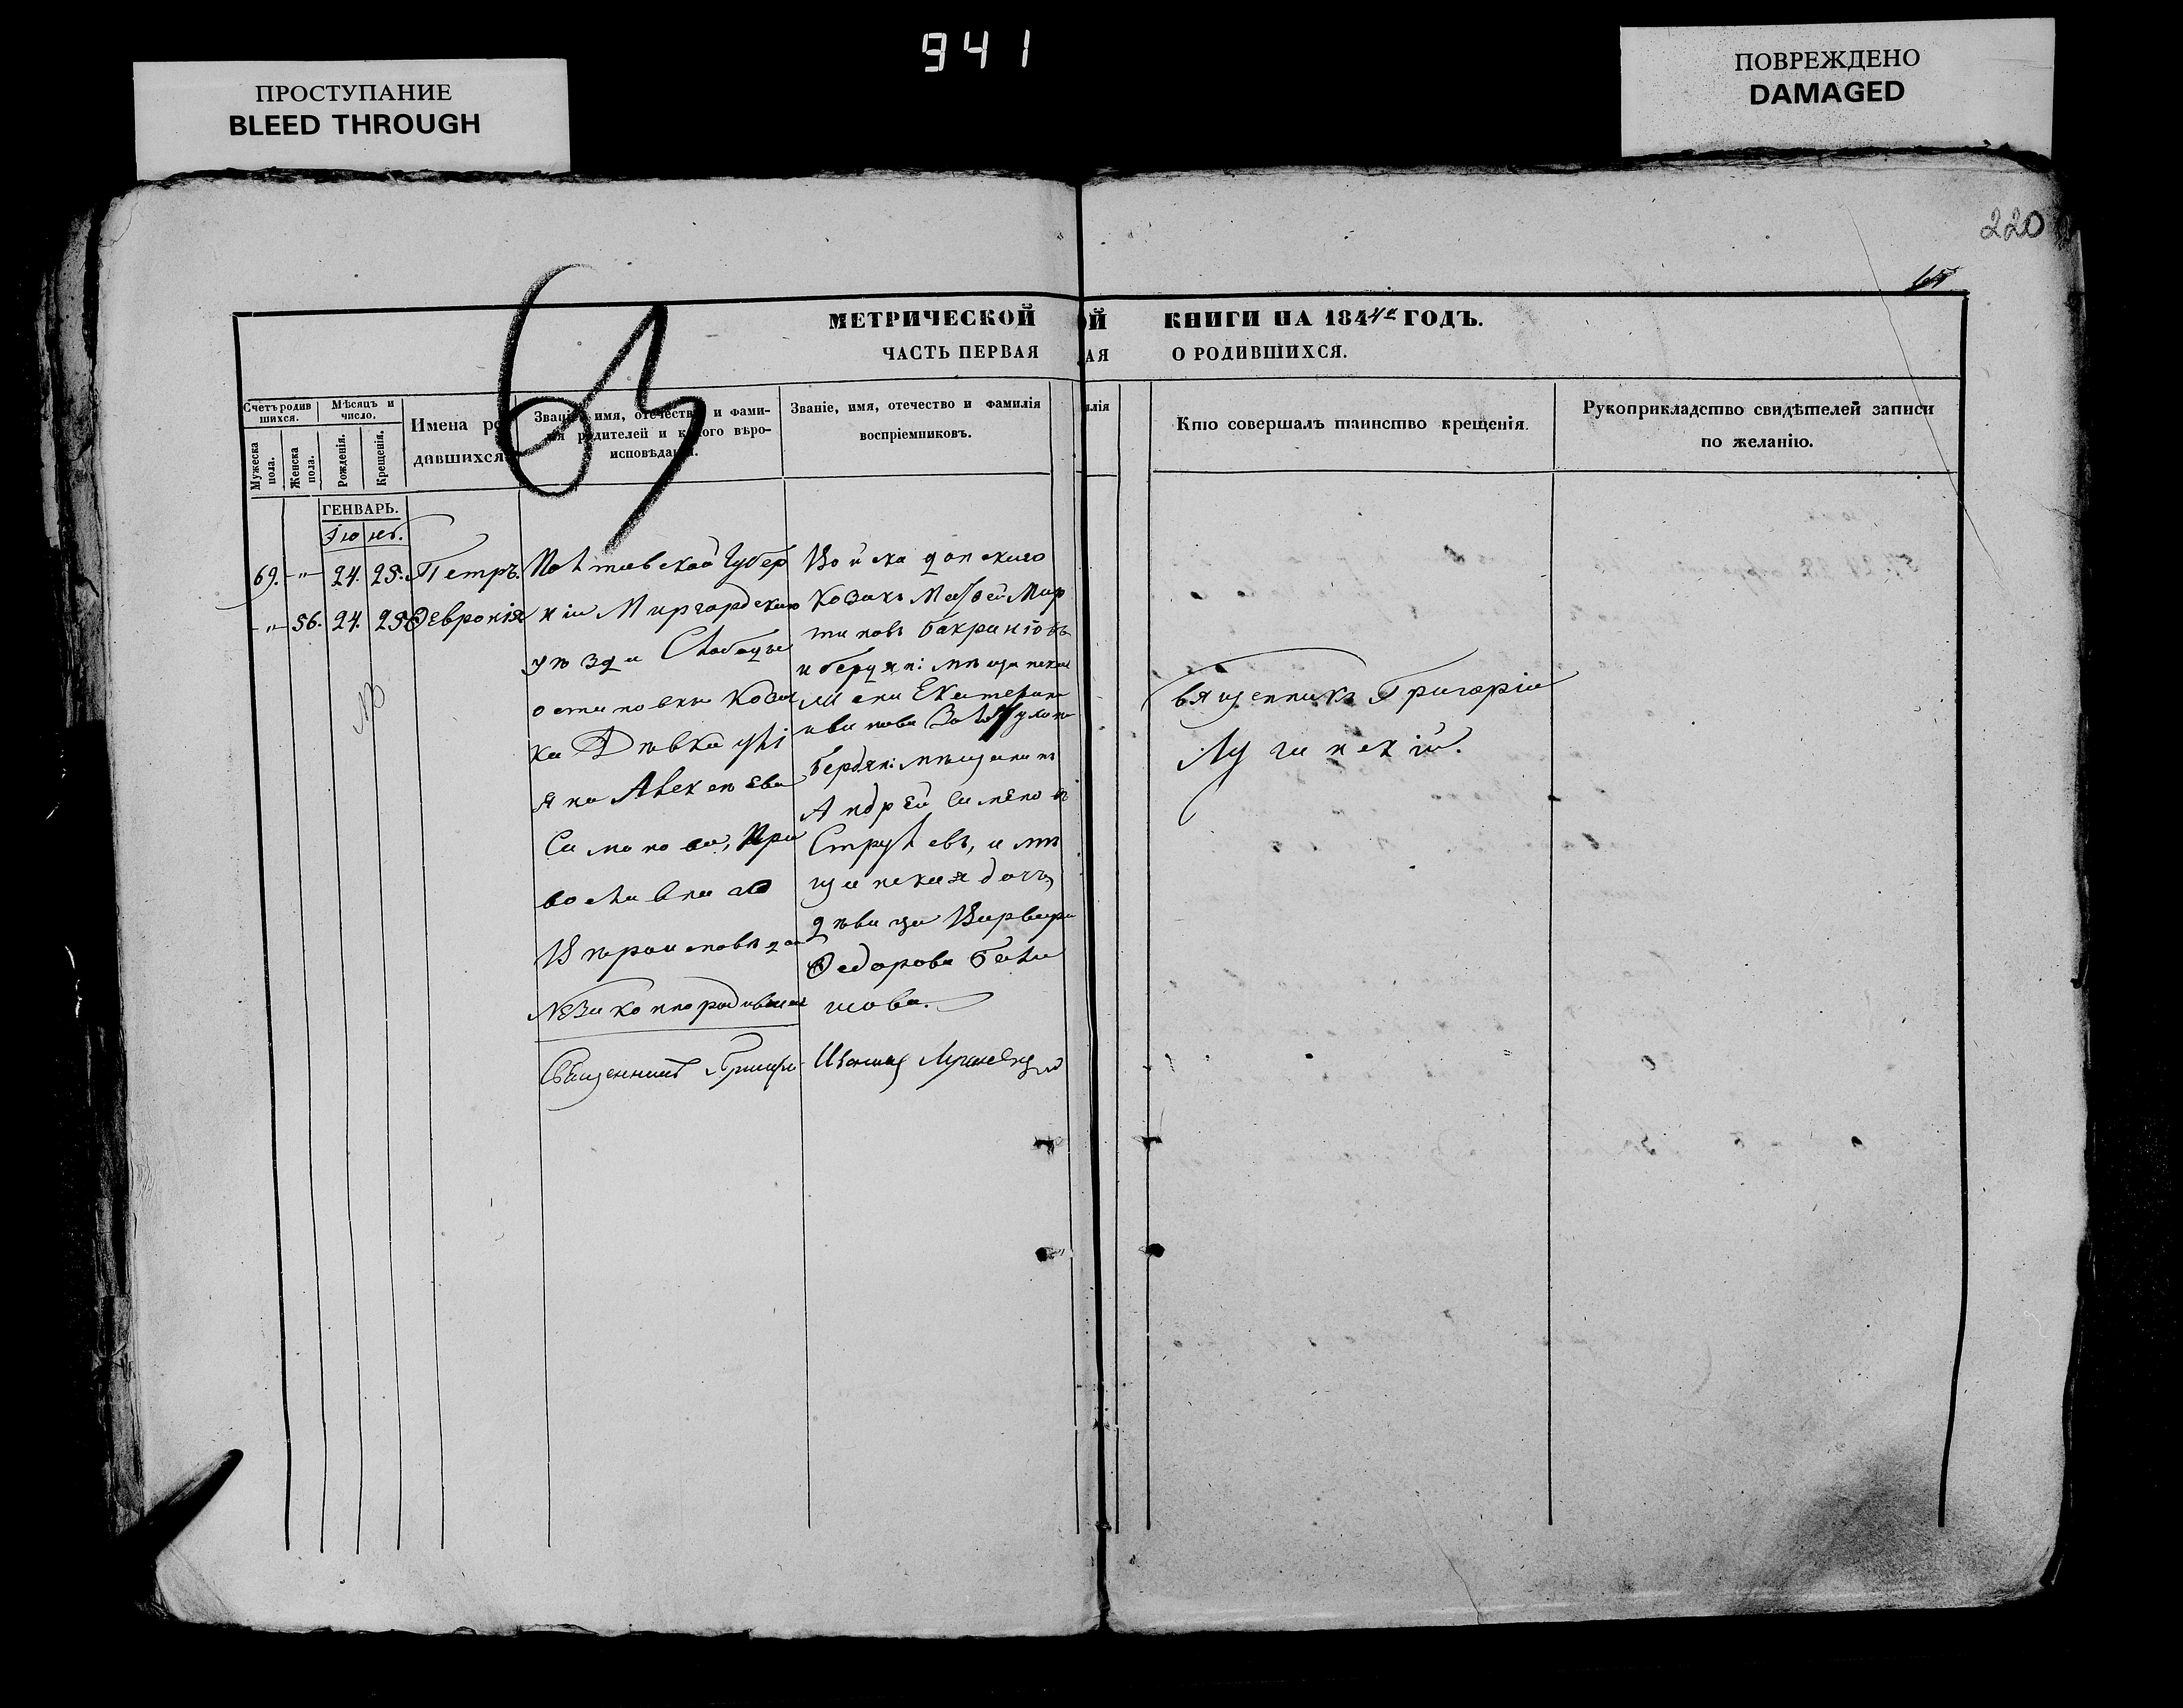 941
ПРОСТУПАНИЕ
BLEED THROUGH
ПОВРЕЖДЕНО
DAMAGED
220
МЕТРИЧЕСКОЙ
ОЙ КНИГИ НА 1844й ГОДЪ.
ЧАСТЬ ПЕРВАЯ
АЯ О РОДИВШИХСЯ.
Счетъ родив
шихся.
Мужеска
пола.
Женска
пола.
Мѣсяцъ и
число.
Рожденія.
Крещенія.
Имена ро
дившихся
Званіе, имя, отечество и фами-
лія родителей и какого вѣро-
исповѣданія.
Званіе, имя, отечество и фамилія
воспріемниковъ.
илія
Кто совершалъ таинство крещенія.
Рукоприкладство свидѣтелей записи
по желанію.
ГЕНВАРЬ.
Іюнь.
69. -"- 24. 25. Петръ.
-"- 56. 24. 25 Ѳевронія
NB
Полтавской Губер
ніи Миргордскаго
уѣзда Слободы
остаповки Коза
ка Дѣвка Улі
яна Алексѣева
Симонова, Пра
вославнаго
Вѣроисповѣдан
Незаконнорадившія
Войска донскаго
Козакъ Матѳей Мар
тиновъ
и бердян: мѣщанка
Екатерина
иванова
бердян: мѣщанинъ
Андрей Симено въ
Струлевъ, и мѣ
щанская дочь,
дѣвица Варвара
Ѳедорова Бала
шова.
Священникъ Григорій
Лугинскій.
Священникъ Григорі